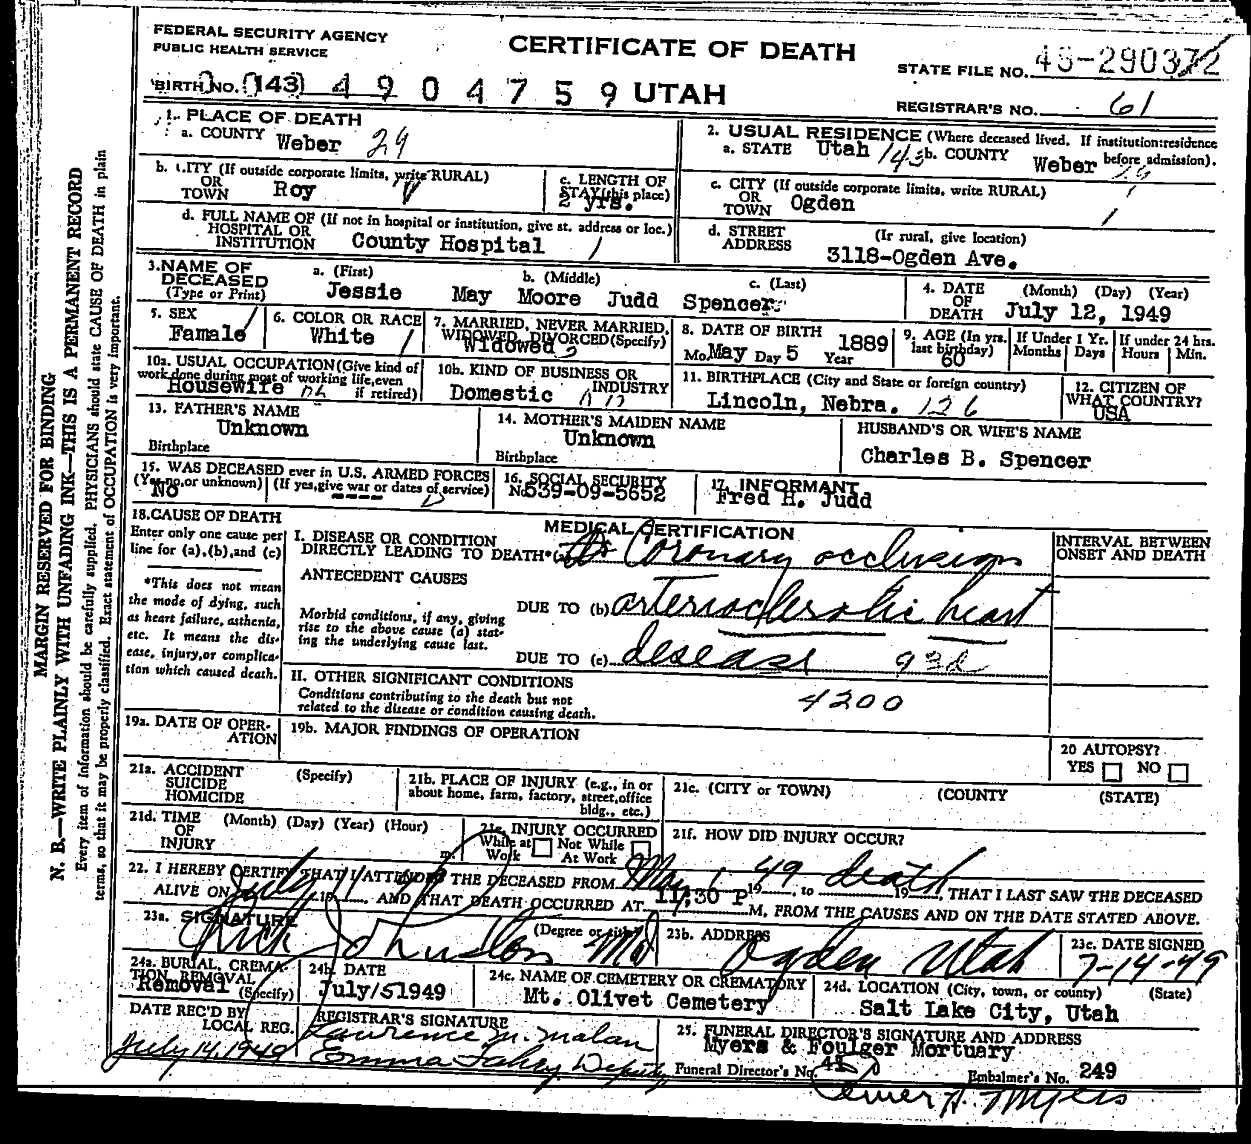 FEDERAL SECURITY AGENCY
PUBLIC HEALTH SERVICE
CERTIFICATE OF DEATH
STATE FILE NO. 48-290372
BIRTH NO. (143) 4904759 UTAH
REGISTRAR'S NO. 61
1. PLACE OF DEATH
a. COUNTY Weber 29
2. USUAL RESIDENCE (Where deceased lived. If institution: residence before admission).
a. STATE Utah 143 b. COUNTY Weber 29
b. CITY (If outside corporate limits, write RURAL) OR TOWN Roy
c. LENGTH OF STAY (this place) 2 yrs.
c. CITY (If outside corporate limits, write RURAL) OR TOWN Ogden
d. FULL NAME OF (If not in hospital or institution, give st. address or loc.) HOSPITAL OR INSTITUTION County Hospital
d. STREET ADDRESS (Ir rural, give location) 3118-Ogden Ave.
3. NAME OF DECEASED (Type or Print)
a. (First) b. (Middle) c. (Last)
Jessie May Moore Judd Spencer
4. DATE OF DEATH (Month) (Day) (Year) July 12, 1949
5. SEX Famale
6. COLOR OR RACE White
7. MARRIED, NEVER MARRIED, WIDOWED, DIVORCED (Specify) Widowed 2
8. DATE OF BIRTH 1889 Mo. May Day 5 Year
9. AGE (In yrs. last birthday) 60
If Under 1 Yr. Months Days
If under 24 hrs. Hours Min.
10a. USUAL OCCUPATION (Give kind of work done during most of working life, even if retired) Housewife
10b. KIND OF BUSINESS OR INDUSTRY Domestic
11. BIRTHPLACE (City and State or foreign country) Lincoln, Nebra. 126
12. CITIZEN OF WHAT COUNTRY? USA
13. FATHER'S NAME Unknown
Birthplace
14. MOTHER'S MAIDEN NAME Unknown
Birthplace
HUSBAND'S OR WIFE'S NAME
Charles B. Spencer
15. WAS DECEASED ever in U.S. ARMED FORCES
(Yes, no, or unknown) No (If yes, give war or dates of service) ----
16. SOCIAL SECURITY No. 539-09-5652
17. INFORMANT Fred H. Judd
18. CAUSE OF DEATH
Enter only one cause per line for (a), (b), and (c)
*This does not mean the mode of dying, such as heart failure, asthenia, etc. It means the disease, injury, or complication which caused death.
MEDICAL CERTIFICATION
INTERVAL BETWEEN ONSET AND DEATH
I. DISEASE OR CONDITION DIRECTLY LEADING TO DEATH* (a) Coronary occlusion
ANTECEDENT CAUSES
Morbid conditions, if any, giving rise to the above cause (a) stating the underlying cause last.
DUE TO (b) arteriosclerotic heart
DUE TO (c) desease 93d
II. OTHER SIGNIFICANT CONDITIONS
Conditions contributing to the death but not related to the disease or condition causing death.
4200
19a. DATE OF OPERATION
19b. MAJOR FINDINGS OF OPERATION
20 AUTOPSY?
YES NO
21a. ACCIDENT SUICIDE HOMICIDE (Specify)
21b. PLACE OF INJURY (e.g., in or about home, farm, factory, street, office bldg., etc.)
21c. (CITY or TOWN) (COUNTY (STATE)
21d. TIME OF INJURY (Month) (Day) (Year) (Hour) m.
21e. INJURY OCCURRED
While at Work Not While At Work
21f. HOW DID INJURY OCCUR?
22. I HEREBY CERTIFY THAT I ATTENDED THE DECEASED FROM May 1 1949, to death 19, THAT I LAST SAW THE DECEASED
ALIVE ON July 11 19, AND THAT DEATH OCCURRED AT 11:30 P M, FROM THE CAUSES AND ON THE DATE STATED ABOVE.
23a. SIGNATURE Johnston (Degree or title) MD
23b. ADDRESS Ogden Utah
23c. DATE SIGNED 7-14-49
24a. BURIAL, CREMATION, REMOVAL (Specify) Removal
24b. DATE July/5 1949
24c. NAME OF CEMETERY OR CREMATORY Mt. Olivet Cemetery
24d. LOCATION (City, town, or county) (State) Salt Lake City, Utah
DATE REC'D BY LOCAL REG. July 14, 1949
REGISTRAR'S SIGNATURE
Lawrence M. Malan
Emma Fahey Deputy
25. FUNERAL DIRECTOR'S SIGNATURE AND ADDRESS
Myers & Foulger Mortuary
Funeral Director's No. Embalmer's No. 249
Elmer A. Myers
MARGIN RESERVED FOR BINDING
N. B.—WRITE PLAINLY WITH UNFADING INK—THIS IS A PERMANENT RECORD
Every item of information should be carefully supplied. PHYSICIANS should state CAUSE OF DEATH in plain
terms, so that it may be properly classified. Exact statement of OCCUPATION is very important.